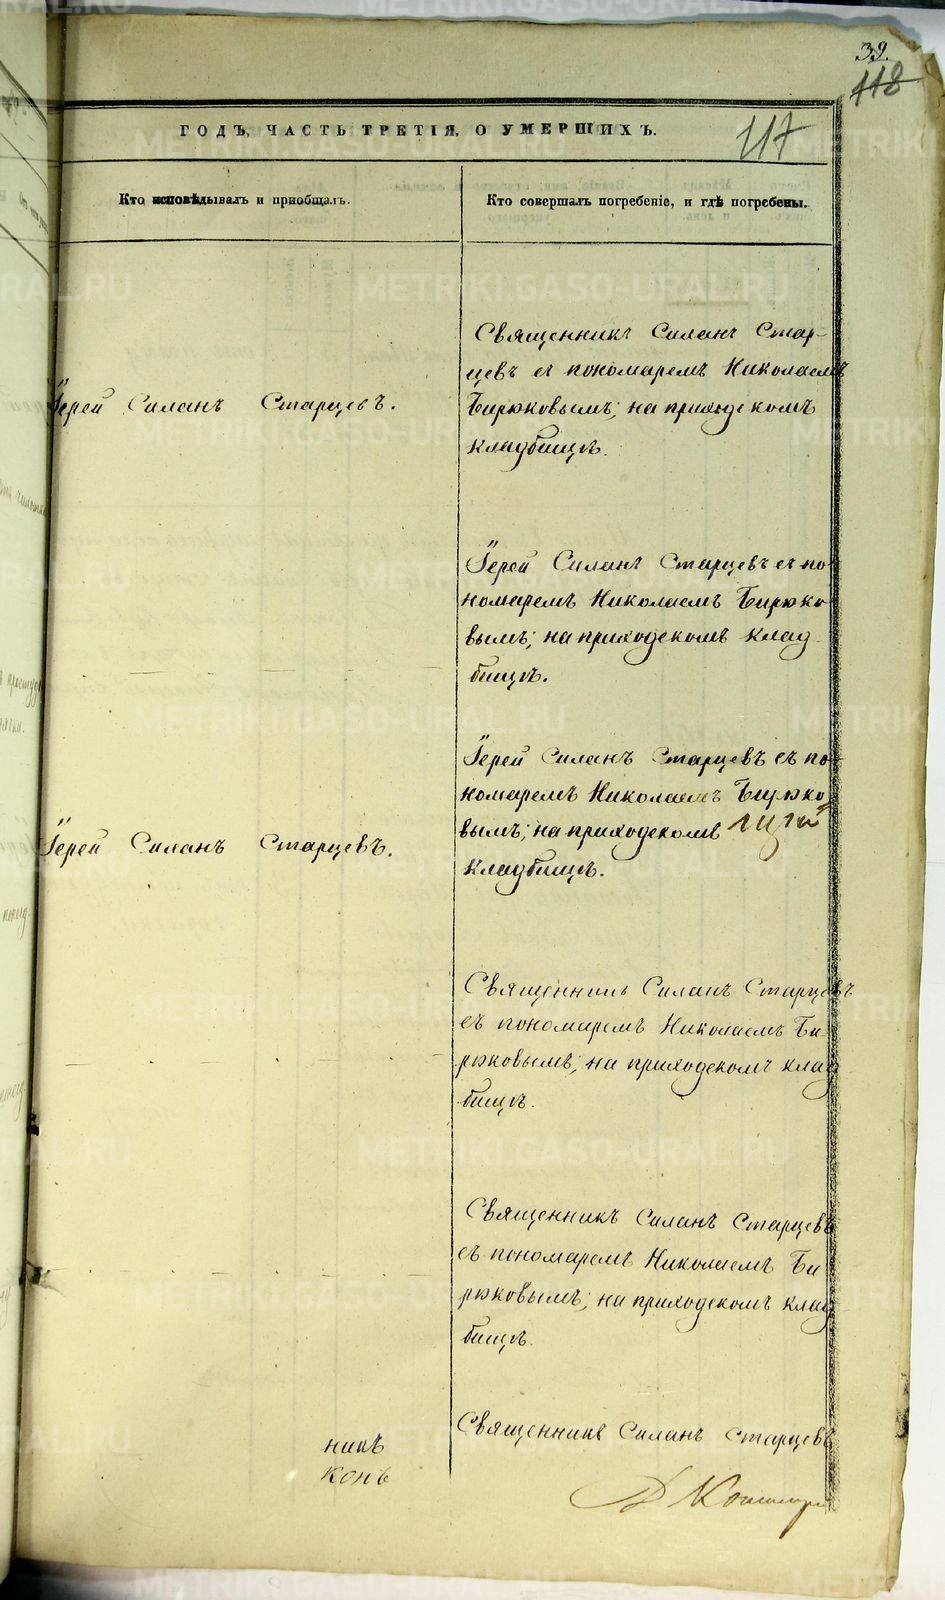 39.
118
117
ГОДЪ, ЧАСТЬ ТРЕТІЯ, О УМЕРШИХЪ.
Кто исповѣдывалъ и пріобщалъ.
Кто совершалъ погребеніе, и гдѣ погребены.
Священникъ Силанъ Стар-
цевъ съ пономаремъ Николаемъ
Бирюковымъ; на приходскомъ
кладбищѣ.
Іерей Силанъ Старцевъ.
Іерей Силанъ Старцевъ съ по-
номаремъ Николаемъ Бирюко-
вымъ; на приходскомъ клад-
бищѣ.
Іерей Силанъ Старцевъ съ по-
номаремъ Николаемъ Бирюко-
вымъ; на приходскомъ
кладбищѣ.
Іерей Силанъ Старцевъ.
Священникъ Силанъ Старцевъ
съ пономаремъ Николаемъ Би-
рюковымъ; на приходскомъ клад-
бищѣ.
Священникъ Силанъ Старцевъ
съ пономаремъ Николаемъ Би-
рюковымъ; на приходскомъ клад-
бищѣ.
Священникъ Силанъ Старцевъ
никъ
конъ
METRIKI.GASO-URAL.RU